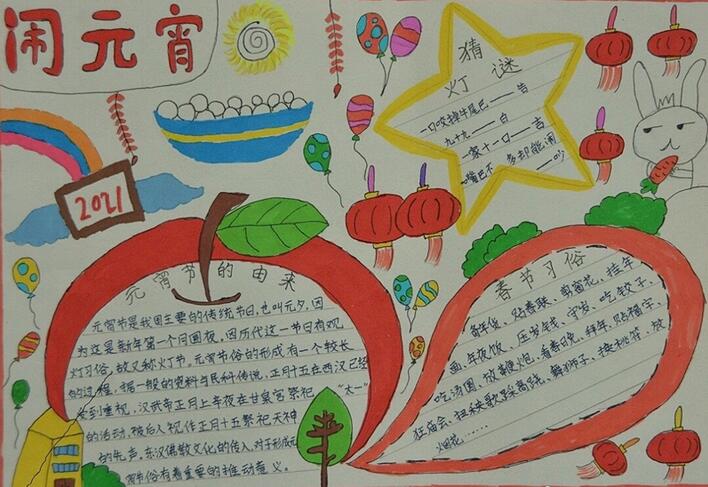 闹元宵
2021
猜
灯谜
一口咬掉牛尾巴——告
九十九——白
一家十一口——吉
嘴巴不多却能闹
——吵
元宵节的由来
元宵节是我国主要的传统节日,也叫元夕,因
为这是新年第一个月圆夜。因历代这一节日有观
灯习俗,故又称灯节。元宵节俗的形成有一个较长
的过程,据一般的资料与民科传说,正月十五在西汉已经
受到重视,汉武帝正月上年夜在甘泉宫祭祀“太一”
的活动,被后人视作正月十五祭祀天神
的先声。东汉佛教文化的传入,对于形成元
宵节俗有着重要的推动意义。
春节习俗
备年货、贴春联、剪窗花、挂年
画、年夜饭、压岁钱、守岁、吃饺子、
吃汤圆、放鞭炮、看春晚、拜年、贴福字、
逛庙会、扭秧歌、踩高跷、舞狮子、接桃符、放
烟花......